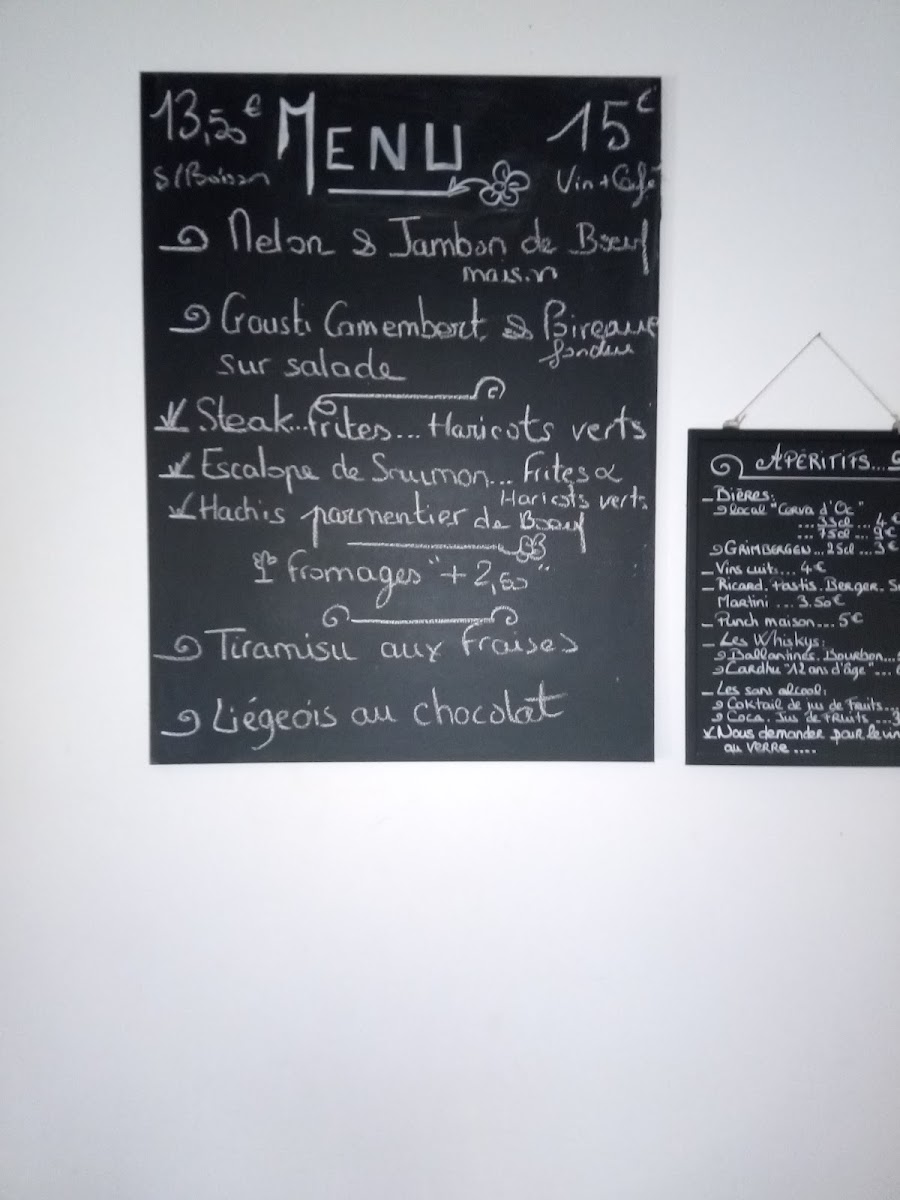 13,50€ MENU 15€
S/Boisson Vin+Café
Melon & Jambon de Bœuf
maison
Crousti Camembert &
fondue
sur salade
Steak...Frites... Haricots verts
Escalope de Saumon... Frites &
Haricots verts
Hachis parmentier de Bœuf
fromages "+2,50"
Tiramisu aux Fraises
Liégeois au chocolat
APÉRITIFS...
Bières:
local "Corva d'Oc"
... 33cl ... 4€
... 75cl ... 9€
GRIMBERGEN... 25cl ... 3€
Vins cuits... 4€
Ricard. Pastis. Berger.
Martini ... 3.50€
Punch maison... 5€
Les Whiskys:
Ballantines. Bourbon...
Cardhu "12 ans d'âge"...
Les sans alcool:
Coktail de jus de Fruits...
Coca. Jus de FRUITS ...
Nous demander pour le vin
au VERRE ....